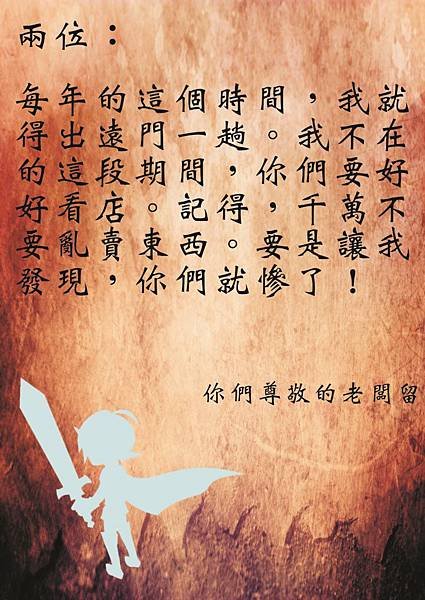 兩位：
每年的這個時間，我就
得出遠門一趟。我不在
的這段期間，你們要好
好看店。記得，千萬不
要亂賣東西。要是讓我
發現，你們就慘了！
你們尊敬的老闆留